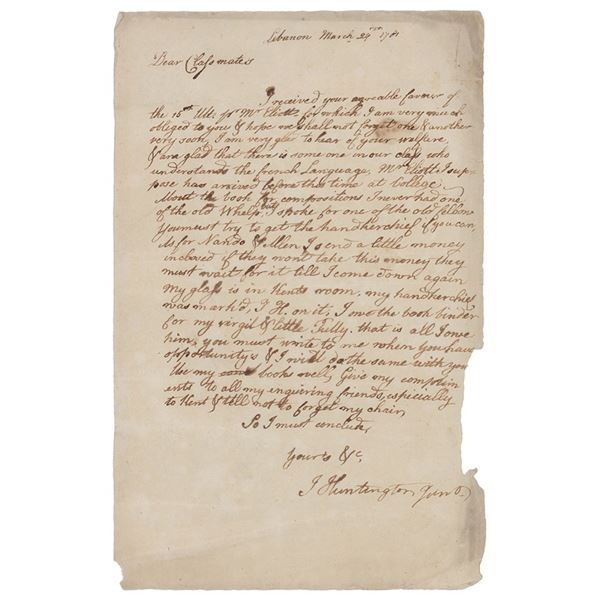 Lebanon March 24th 1781
Dear Classmates
I received your agreable favour of
the 15th Ult. pr Mr Eliott for which I am very much
obliged to you & hope we shall not forget one & another
very soon, I am very glad to hear of your welfare
& am glad that there is some one in our class who
understands the french Language, Mr Eliott I sup-
pose has arrived before this time at College.
About the book for compositions I never had one
of the old Whelp, but I spoke for one of the old fellow
You must try to get the handkerchief if you can,
As for Nando & Allen I send a little money
inclosed if they wont take this money they
must wait for it till I come down again
My glass is in Kents room, my handkerchief
was mark'd, I H. on it, I owe the book binder
for my virgil & little Tully. that is all I owe
him, you must write to me when you have
opportunity's & I will do the same with you
Use my books well, Give my complim
ents to all my enquiring friends, especially
to Kent & tell not to forget my chair,
So I must conclude,
Your's &c,
J Huntington, Junr